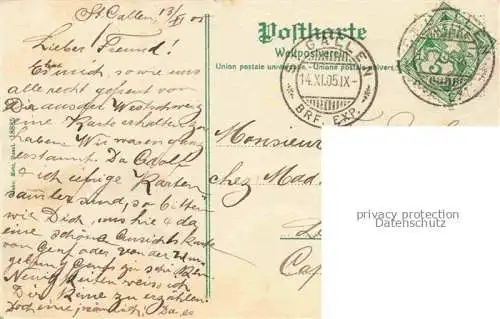 St. Gallen, 13/XI 05
Lieber Freund!
mich, sowie uns
alle recht gefreut von
Dir aus der Westschweiz
eine Karte erhalten zu
haben. Wir waren ganz
erstaunt. Da Adolf
& ich eifrige Karten
sammler sind, so bitten
wir Dich, uns hie & da
eine schöne Ansichtskarte
von Genf oder von der Um
gebung Genfs zu
Neuigkeiten weiss ich
Dir keine zu erzählen.
Doch eine, nämlich, Da, es
Postkarte
Weltpostverein
Union postale universelle. - Unione postale univers
ST. GALLEN
14.XI.05.IX-
BRF. EXP.
Monsieur
chez Mad.
privacy protection
Datenschutz